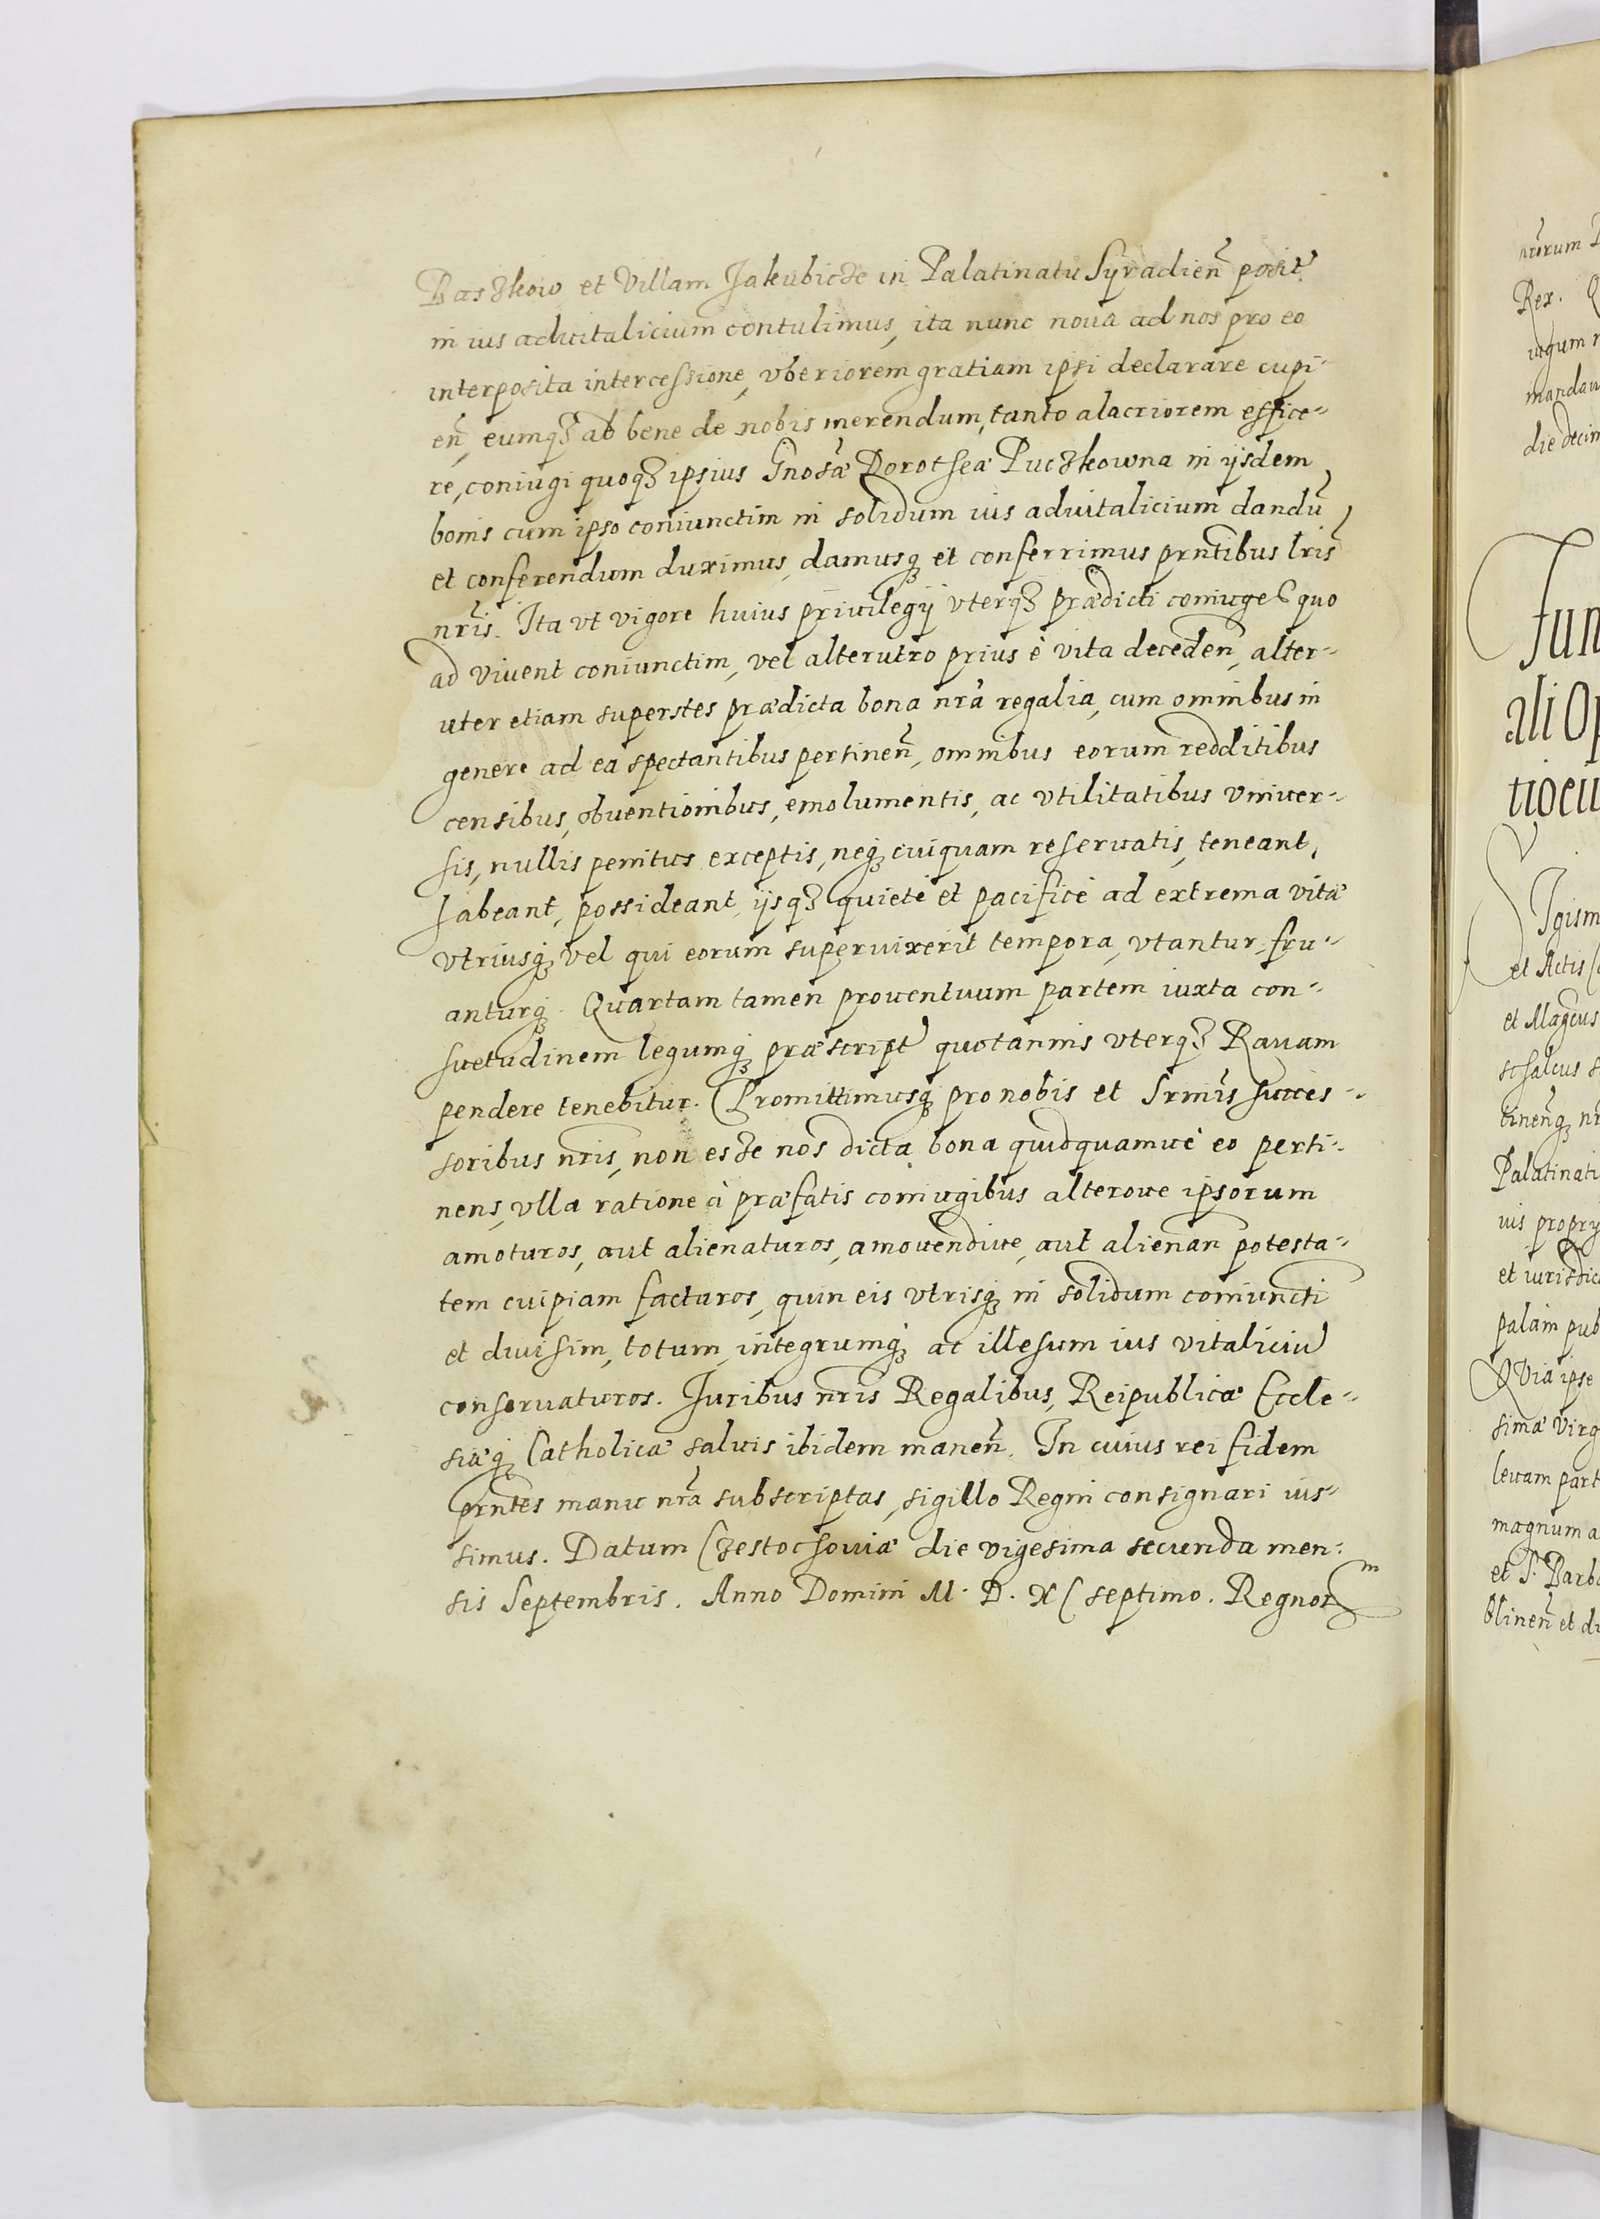 Baszkow et Villam Jakubicze in Palatinatu Syradien̄ posit
in ius aduitalicium contulimus, ita nunc noua ad nos pro eo
interposita intercessione, vberiorem gratiam ipsi declarare cupi-
en̄, eumqꝫ ad bene de nobis merendum, tanto alacriorem effice-
re, coniugi quoqꝫ ipsius Gnosæ Dorotheæ Puczkowna in ijsdem
bonis cum ipso coniunctim in solidum ius aduitalicium dandū
et conferendum duximus, damusqꝫ et conferrimus prn̄tibus lris̄
nris̄. Ita vt vigore huius priuilegij vterqꝫ prædicti coniuges quo
ad viuent coniunctim, vel alterutro prius è vita deceden̄, alter-
uter etiam superstes prædicta bona nrā regalia, cum omnibus in
genere ad ea spectantibus pertinen̄, omnibus eorum redditibus
censibus, obuentionibus, emolumentis, ac vtilitatibus vniuer-
sis, nullis penitus exceptis, neqꝫ cuiquam reseruatis, teneant,
habeant, possideant, ijsqꝫ quietè et pacificè ad extrema vitæ
vtriusqꝫ vel qui eorum superuixerit tempora, vtantur, fru-
anturqꝫ. Quartam tamen prouentuum partem iuxta con-
suetudinem legumqꝫ præscript quotannis vterqꝫ Rauam
pendere tenebitur. Promittimusqꝫ pro nobis et Srmis̄ succes-
soribus nris̄, non esse nos dicta bona quidquamue eo perti-
nens, vlla ratione à præfatis coniugibus alteroue ipsorum
amoturos, aut alienaturos, amouendiue, aut alienan̄ potesta-
tem cuipiam facturos, quin eis vtrisqꝫ in solidum coniuncti
et diuisim, totum, integrumqꝫ ac illesum ius vitaliciū
conseruaturos. Juribus nris̄ Regalibus, Reipublicæ Eccle-
siæqꝫ Catholicæ saluis ibidem manen̄. In cuius rei fidem
prn̄tes manu nrā subscriptas, sigillo Regni consignari ius-
simus. Datum Czestochouiæ die vigesima secunda men-
sis Septembris. Anno Domini M. D. XC septimo. Regnor
nrōrum
Rex.
die decim
Jun
ali Op
tiocu
Igism
et Actis
et Magcus
Palatinati
ius propry
et iurisdic
palam pub
Quia ipse
simæ Virg
leuam part
magnum a
et S. Barba